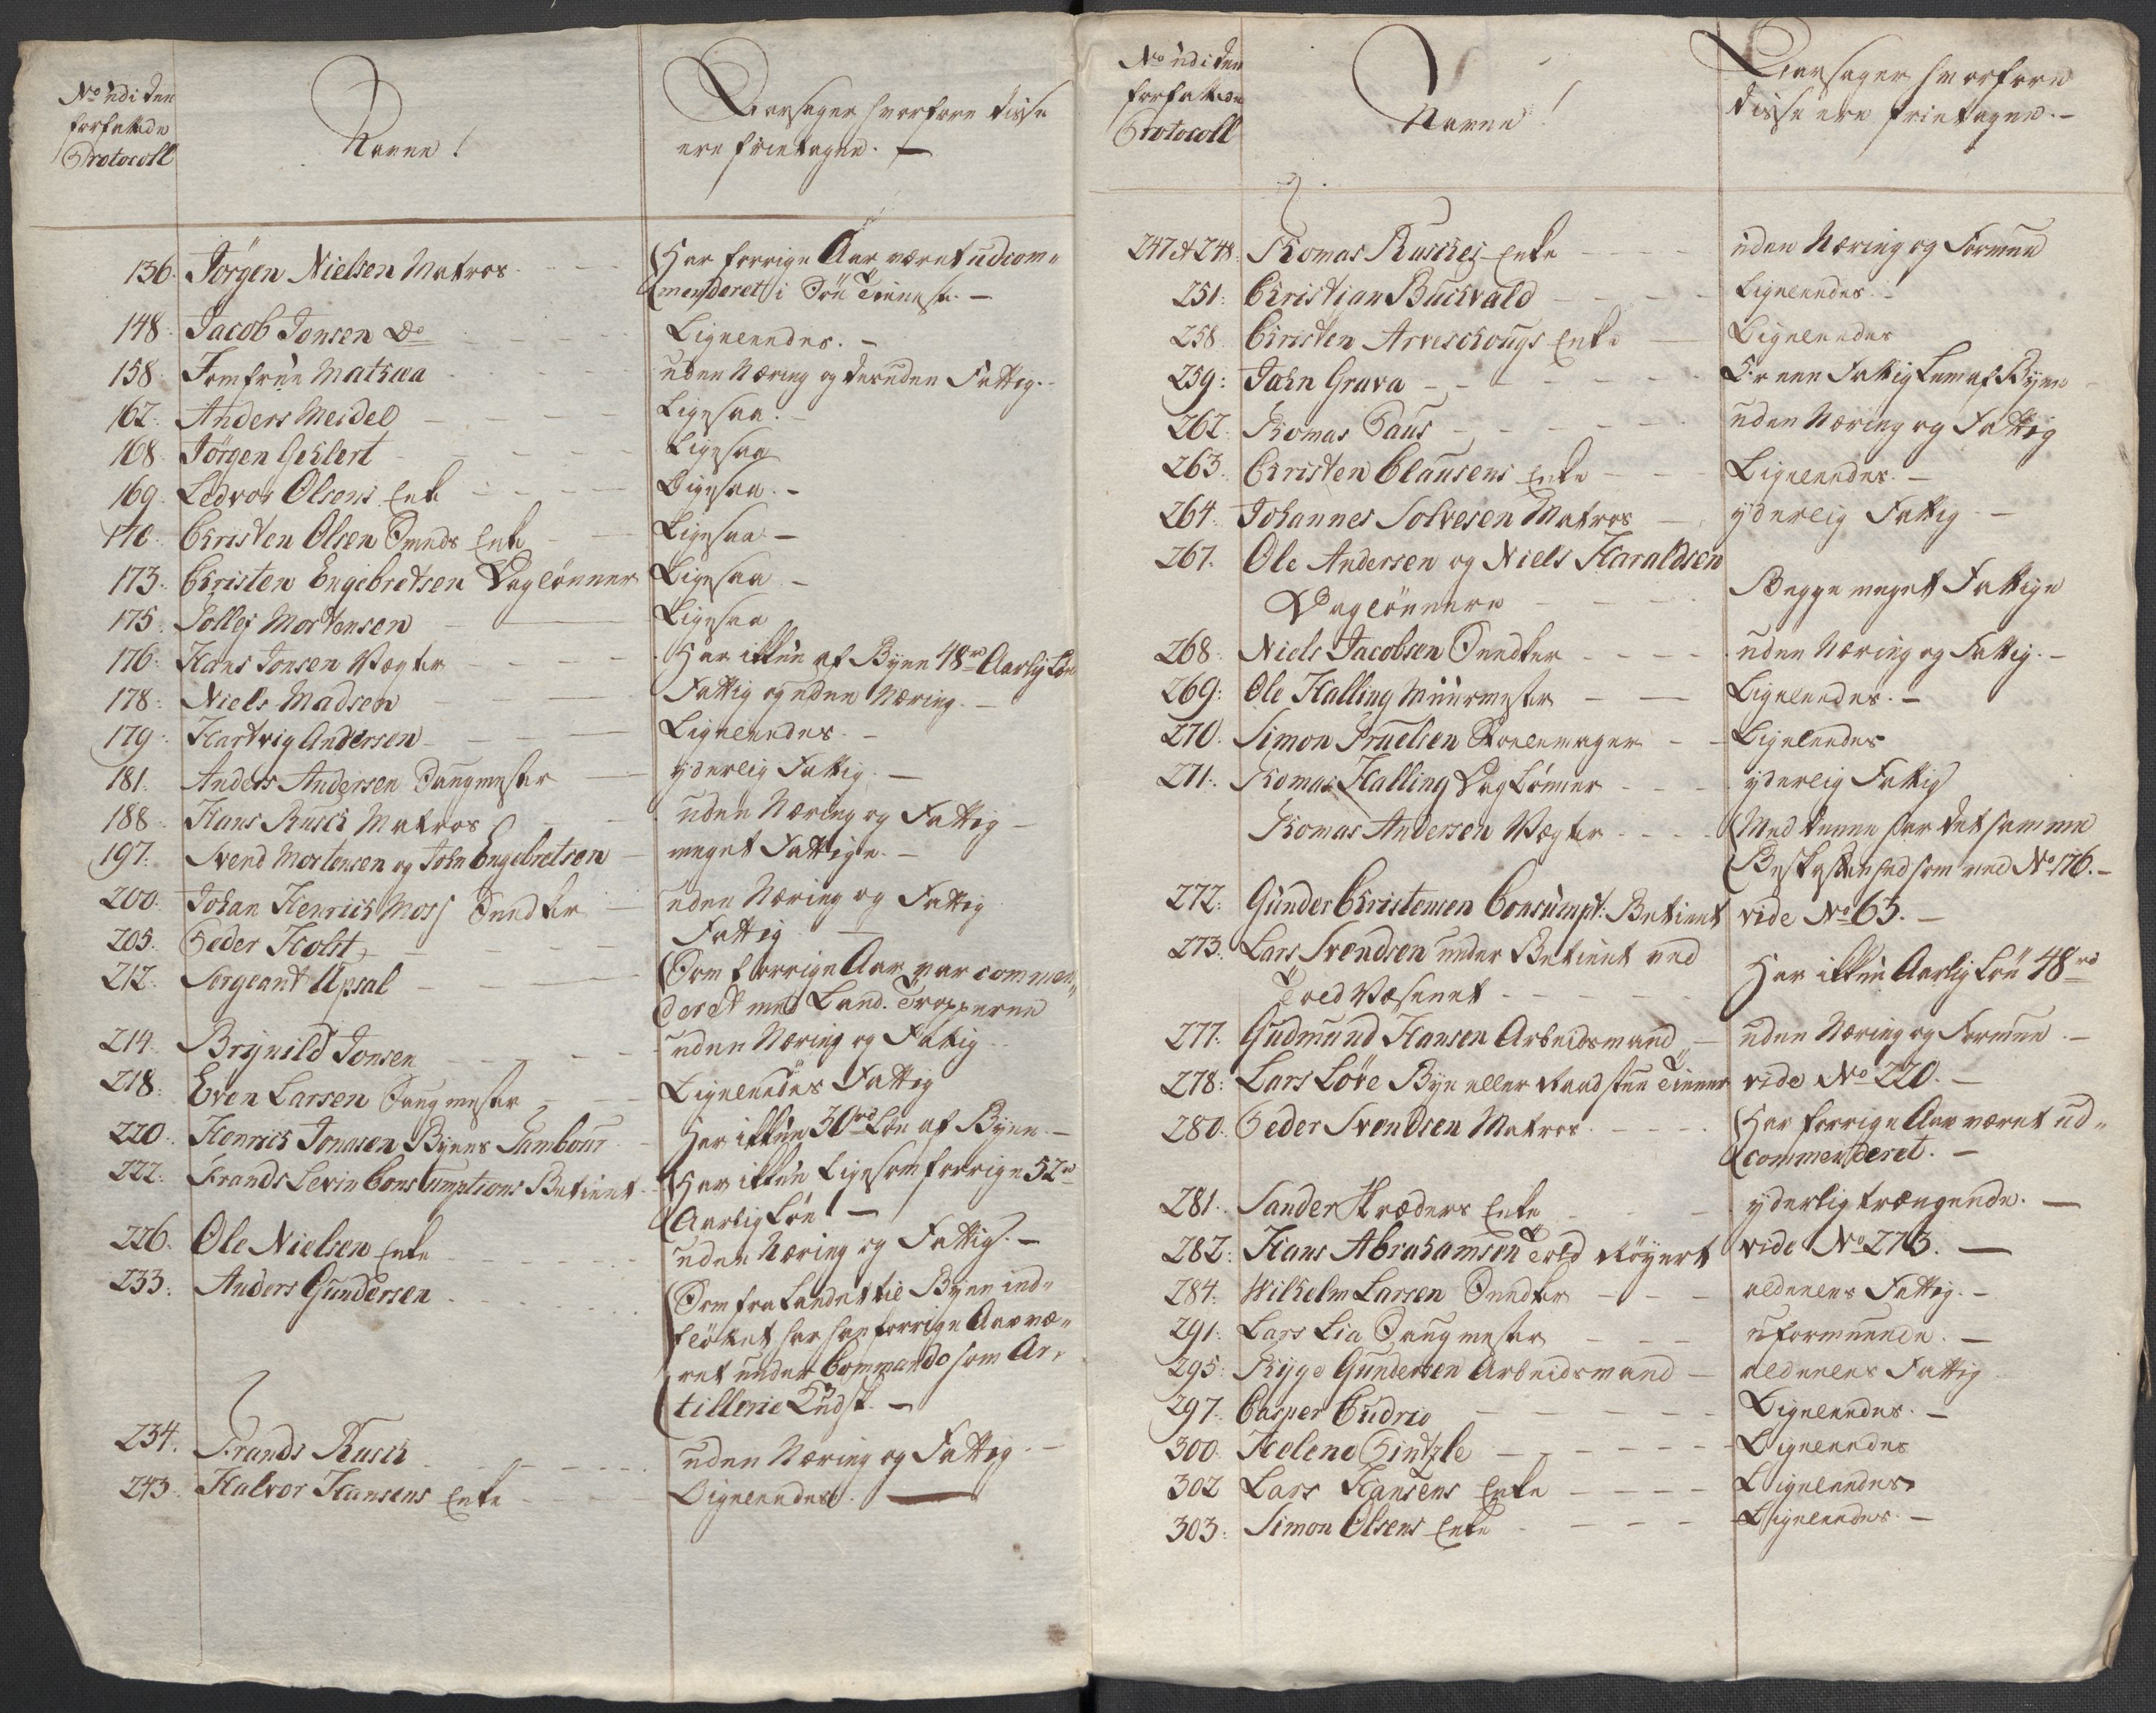 No udi den
forfattede
Protocoll
Navne!
Aarsager hvorfore disse
ere frietagne. —
136. Jörgen Nielsen Matros - - - Har forrige Aar været udcom-
menderett i Söe Tienneste. —
148. Jacob Jonsen Do - - - - Ligeleedes. —
158. Jomfrue Mathæa - - - - uden Næring og desuden Fattig. -
162. Anders Meidel - - - - Ligesaa. -
168. Jörgen Gehlert - - - - - Ligesaa
169. Ledvor Olsens Enke - - - - Ligesaa. -
170. Christen Olsen Smeds Enke - - Ligesaa —
173. Christen Engebretsen Daglönner Ligesaa -
175. Sollej Mortensen - — Ligesaa
176. Hans Jonsen Vægter - - - - Har ikkun af Byen 48rd Aarlig Lön
178. Niels Madsen - - — Fattig og uden Næring. —
179. Hartvig Andersen - - - - — Ligeleedes. -
181. Anders Andersen Saugmester — yderlig Fattig. —
188. Hans Rusch Matros - - uden Næring og Fattig —
197. Svend Mortensen og John Engebretsen — meget Fattige. —
200. Johan Henrich Moss Snedker — uden Næring og Fattig
205. Peder Holst - - - - - Fattig —
212. Sergeant Upsal - - — Som forrige Aar var commen-
deret med Land-Tropperne
214. Brynild Jonsen - - - - - uden Næring og Fattig -
218. Even Larsen Saugmester - - - Ligeleedes Fattig
220. Henrich Jonasen Byens Tambour - Har ikkun 30rd Lön af Byen —
222. Frands Levin Consumptions Betient Har ikkun ligesom forrige 52rd
Aarlig Lön! —
226. Ole Nielsen Enke - - - - - uden Næring og Fattig. —
233. Anders Gundersen - - - - Som fra Landet til Byen ind-
flöttet har han forrige Aar væ-
ret under Commando som Ar-
tillerie Kudsk. —
234. Frands Rusch - - - - - uden Næring og Fattig. —
243. Halvor Hansens Enke - - - - Ligeleedes. —
No udi den
forfattede
Protocoll
Navne!
Aarsager hvorfore
disse ere frietagne. —
247 et 248. Thomas Rusches Enke - - - uden Næring og Formue
251. Christian Buchvald - - - - Ligeleedes. -
258. Christen Arveschougs Enke — Ligeleedes
259: John Grava - - - - - - Er een Fattig Lem af Byen
262. Thomas Paus - - - - - - uden Næring og Fattig
263. Christen Clausens Enke - - Ligeleedes. —
264. Johannes Solvesen Matros — yderlig Fattig —
267. Ole Andersen og Niels Haraldsen
Daglönnere - - - Begge meget Fattige
268. Niels Jacobsen Snedker - - - - uden Næring og Fattig. —
269: Ole Halling Muurmester - — Ligeleedes. —
270. Simon Truelsen Stoelemager - - Ligeleedes
271. Thomas Halling Daglönner - - - yderlig Fattig
Thomas Andersen Vægter - - - - Med denne har det samme
Beskaffenhed som med No 176. —
272. Gunder Christensen Consumpt: Betient vide No 63. —
273. Lars Svendsen under Betient ved
Told Væsenet - - - - - - Har ikkun Aarlig Lön 48rd
277. Gudmund Hansen Arbeidsmand — uden Næring og Formue. —
278: Lars Löve Bye eller Raadstue Tienner vide No 220. —
280. Peder Svendsen Matros - - - - Har forrige Aar været ud-
commenderet. —
281. Sander Skræders Enke - - - yderlig trængende. —
282: Hans Abrahamsen Told Röyert vide No 273. —
284. Wilhelm Larsen Snedker - - - aldeeles Fattig. —
291. Lars Lia Saugmester - - - uformuende. —
295: Thyge Gundersen Arbeidsmand — aldeeles Fattig
297. Casper Cudrio - - - - - Ligeleedes. —
300. Helene Gintzle - - - - - - Ligeleedes
302 Lars Hansens Enke - - - - Ligeleedes
303: Simon Olsens Enke - - - - Ligeleedes. —